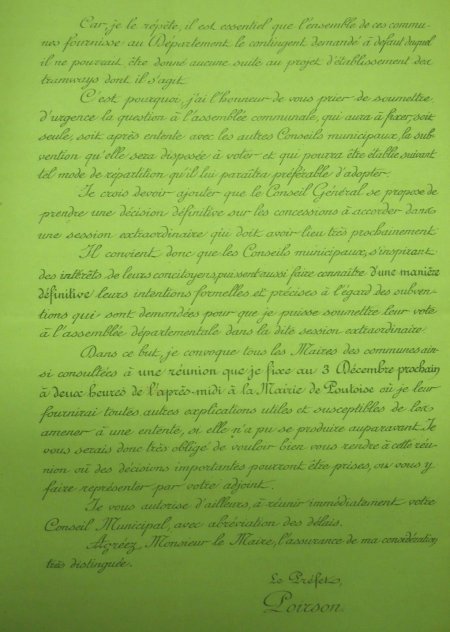 Car, je le répète, il est essentiel que l'ensemble de ces commu-
nes fournisse au Département le contingent demandé à défaut duquel
il ne pourrait être donné aucune suite au projet d'établissement des
tramways dont il s'agit.
C'est pourquoi, j'ai l'honneur de vous prier de soumettre
d'urgence la question à l'assemblée communale, qui aura à fixer, soit
seule, soit après entente avec les autres Conseils municipaux, la sub-
vention qu'elle sera disposée à voter et qui pourra être établie suivant
tel mode de répartition qu'il lui paraîtra préférable d'adopter.
Je crois devoir ajouter que le Conseil Général se propose de
prendre une décision définitive sur les concessions à accorder dans
une session extraordinaire qui doit avoir lieu très prochainement.
Il convient donc que les Conseils municipaux, s'inspirant
des intérêts de leurs concitoyens puissent aussi faire connaître d'une manière
définitive leurs intentions formelles et précises à l'égard des subven-
tions qui sont demandées pour que je puisse soumettre leur vote
à l'assemblée départementale dans la dite session extraordinaire.
Dans ce but, je convoque tous les Maires des communes ain-
si consultées à une réunion que je fixe au 3 Décembre prochain
à deux heures de l'après-midi à la Mairie de Pontoise où je leur
fournirai toutes autres explications utiles et susceptibles de les
amener à une entente, si elle n'a pu se produire auparavant. Je
vous serais donc très obligé de vouloir bien vous rendre à cette réu-
nion où des décisions importantes pourront être prises, ou vous y
faire représenter par votre adjoint.
Je vous autorise d'ailleurs, à réunir immédiatement votre
Conseil Municipal, avec abréviation des délais.
Agréez, Monsieur le Maire, l'assurance de ma considération
très distinguée.
Le Préfet,
Poirson.